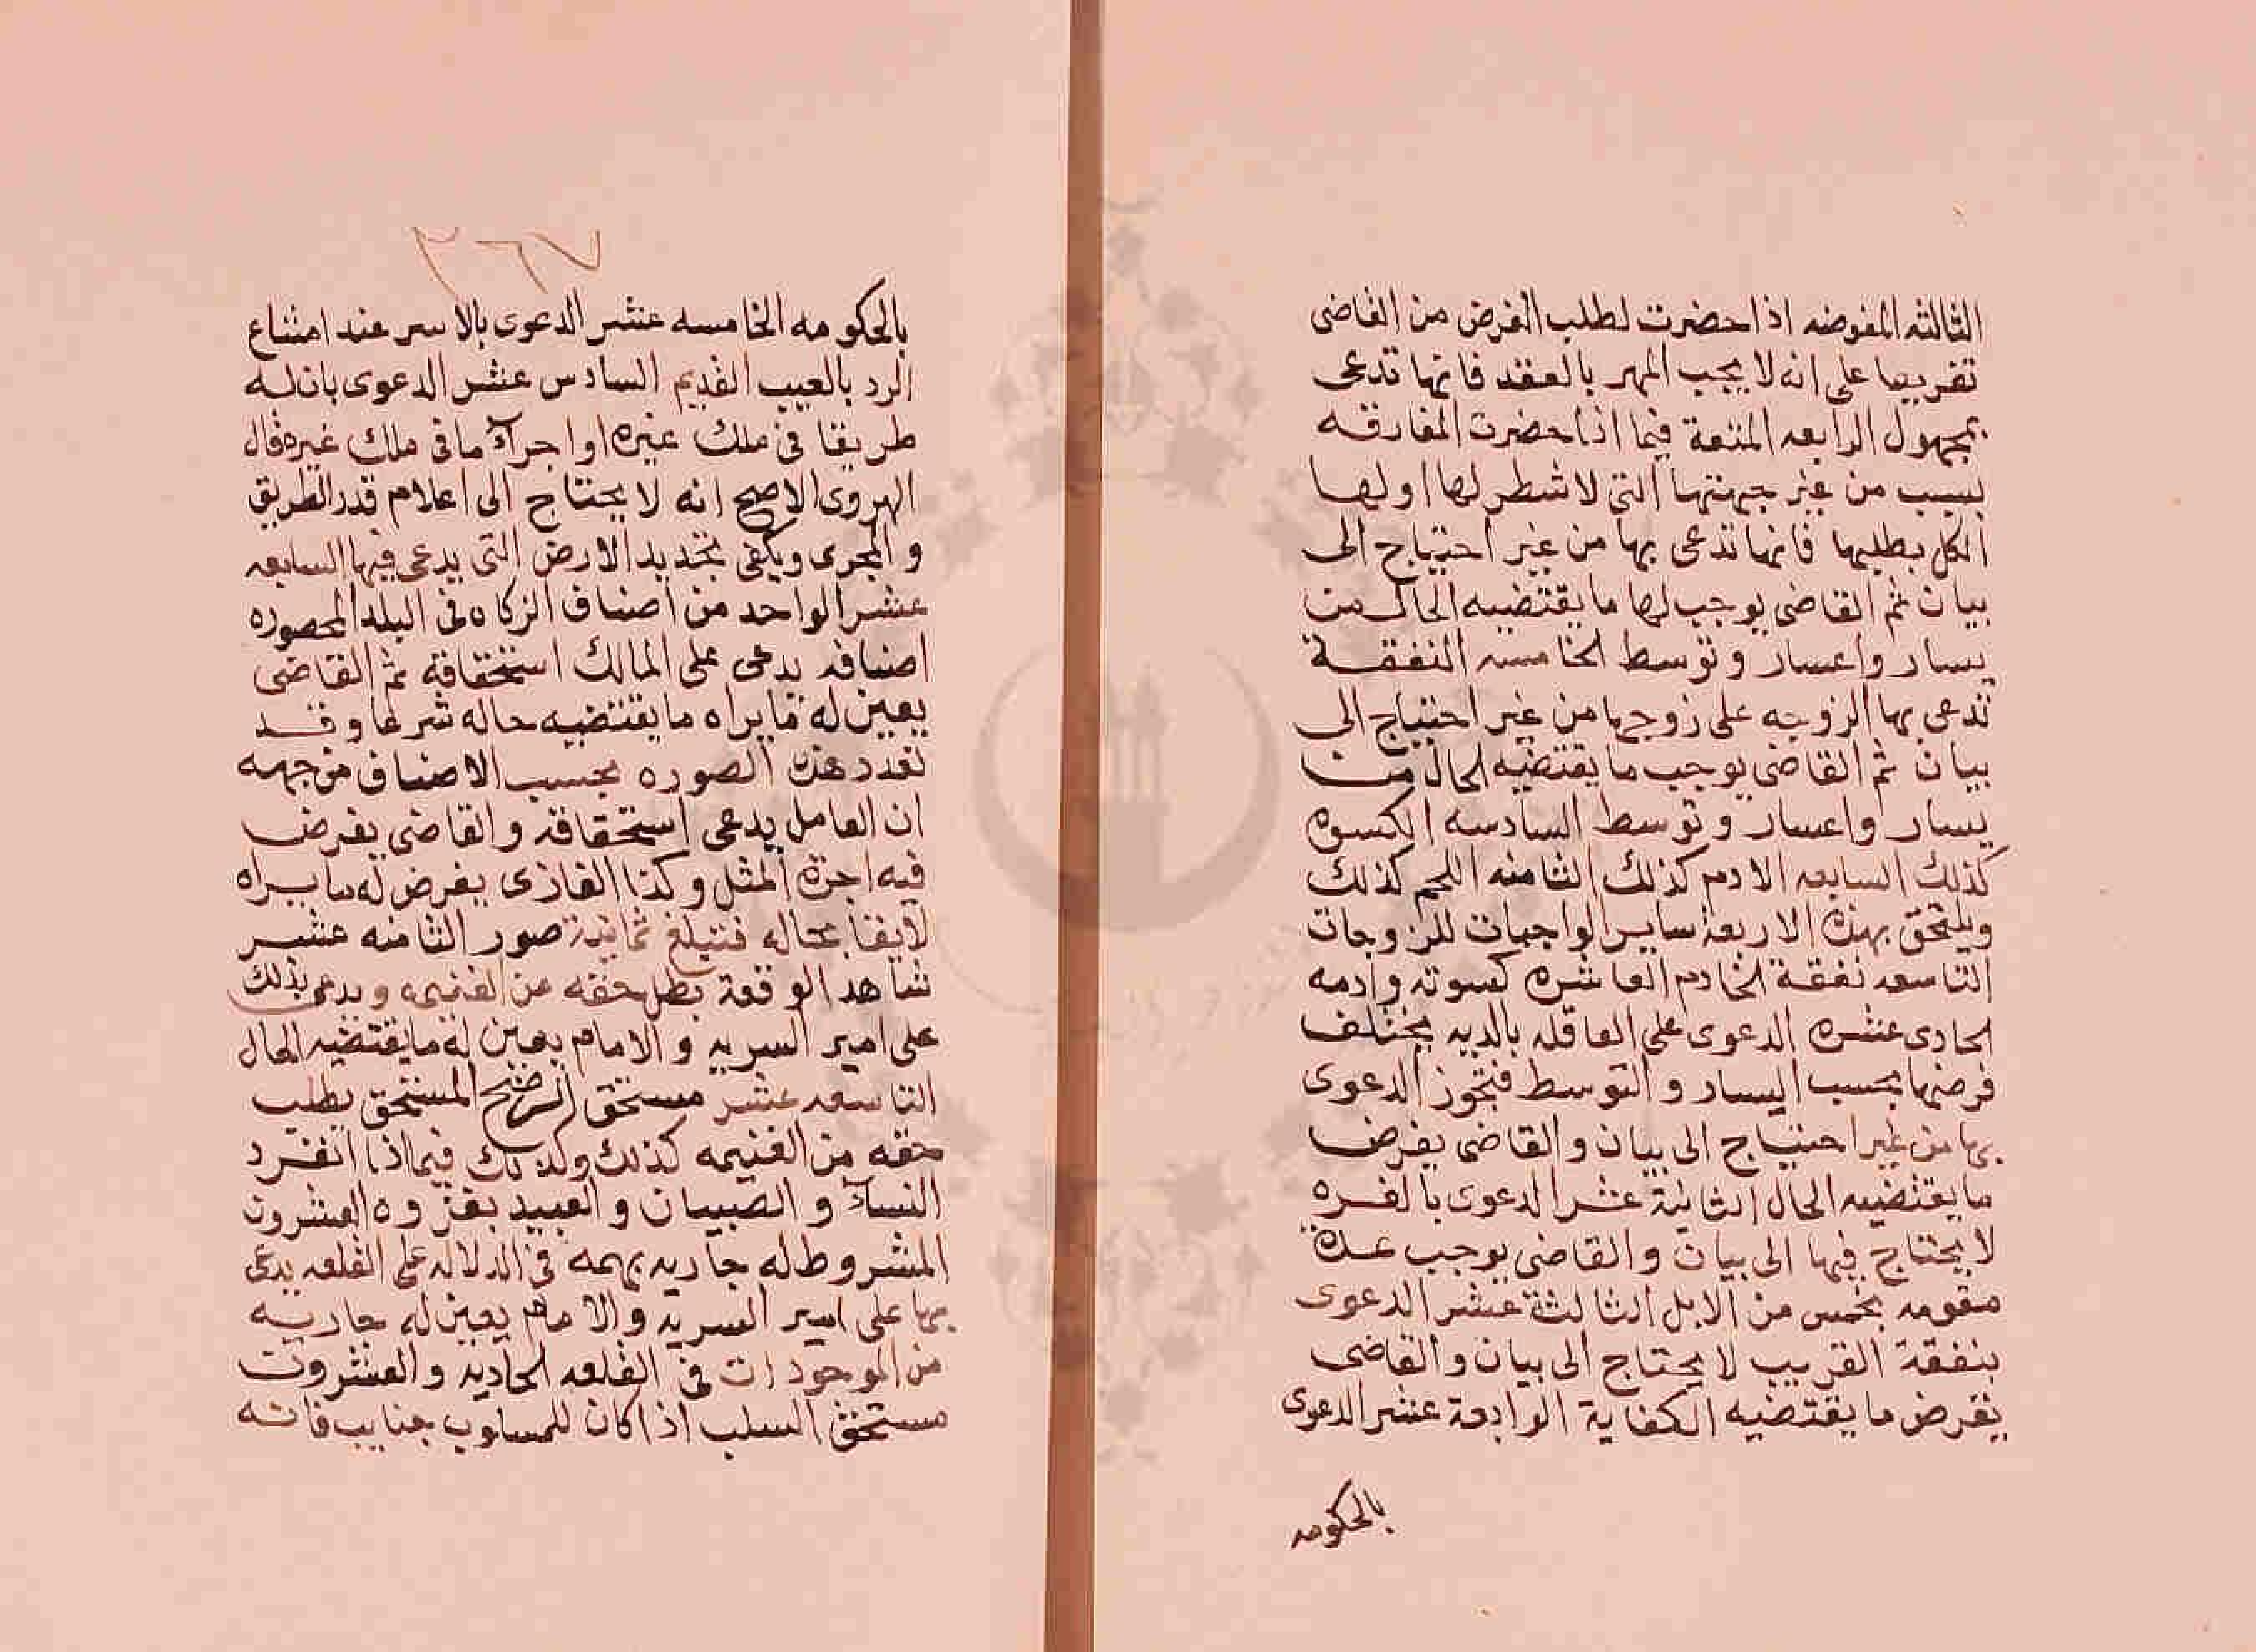 الثالثه المفوضه اذا حضرت لطلب الفرض من القاضى
تفريعا على انه لا يجب المهر بالعقد فانها تدعى
بمجهول الرابعه المتعة فيما اذا حضرت المفارقه
بسبب من غير جهتها التي لا شطر لها او لها
الكل بطلبها فانها تدعى بها من غير احتياج الى
بيان ثم القاضى يوجب لها ما يقتضيه الحال من
يسار واعسار وتوسط الخامسه النفقة
تدعى بها الزوجه على زوجها من غير احتياج الى
بيان ثم القاضى يوجب ما يقتضيه الحال من
يسار واعسار وتوسط السادسه الكسوه
كذلك السابعه الادم كذلك الثامنه اللحم كذلك
ويلتحق بهذه الاربعة ساير الواجبات للزوجات
التاسعه نفقة الخادم العاشره كسوته وادمه
الحادى عشره الدعوى على العاقله بالديه مختلف
فرضها بحسب اليسار والتوسط فتجوز الدعوى
بها من غير احتياج الى بيان والقاضى يفرض
ما يقتضيه الحال الثانية عشر الدعوى بالغره
لا يحتاج فيها الى بيان والقاضى يوجب عده
مقومه بخمس من الابل الثالثة عشر الدعوى
بنفقة القريب لا يحتاج الى بيان والقاضى
يفرض ما يقتضيه الكفاية الرابعة عشر الدعوى
بالحكومه
٢٦٧
بالحكومه الخامسه عشر الدعوى بالا سر عند امتناع
الرد بالعيب القديم السادس عشر الدعوى بان له
طريقا في ملك غيره او اجرآ ما في ملك غيره قال
الهروى الاصح انه لا يحتاج الى اعلام قدر الطريق
والمجرى ويكفى تحديد الارض التى يدعى فيها السابعه
عشر الواحد من اصناف الزكاه في البلد المحصوره
اصنافه يدعى على المالك استحقاقه ثم القاضى
يعين له ما يراه ما يقتضيه حاله شرعا وقد
تعدد هذه الصوره بحسب الاصناف من جهه
ان العامل يدعى استحقاقه والقاضى يفرض
فيه اجرة المثل وكذا الغازى يفرض له ما يراه
لايقا بحاله فتبلغ ثمانية صور الثامنه عشر
شاهد الوقعة بطل حقه من الغنيمه ويدعى بذلك
على امير السريه والامام يعين له ما يقتضيه الحال
التاسعه عشر مستحق الرضخ المستحق يطلب
حقه من الغنيمه كذلك وكذلك فيما اذا انفرد
النسآ والصبيان والعبيد بغزوه العشرون
المشروط له جاريه بهمه في الدلاله على القلعه يدعى
بها على امير السريه والامام يعين له جاريه
من الموجودات في القلعه الحاديه والعشرون
مستحق السلب اذا كان للمسلوب جنايب فانه